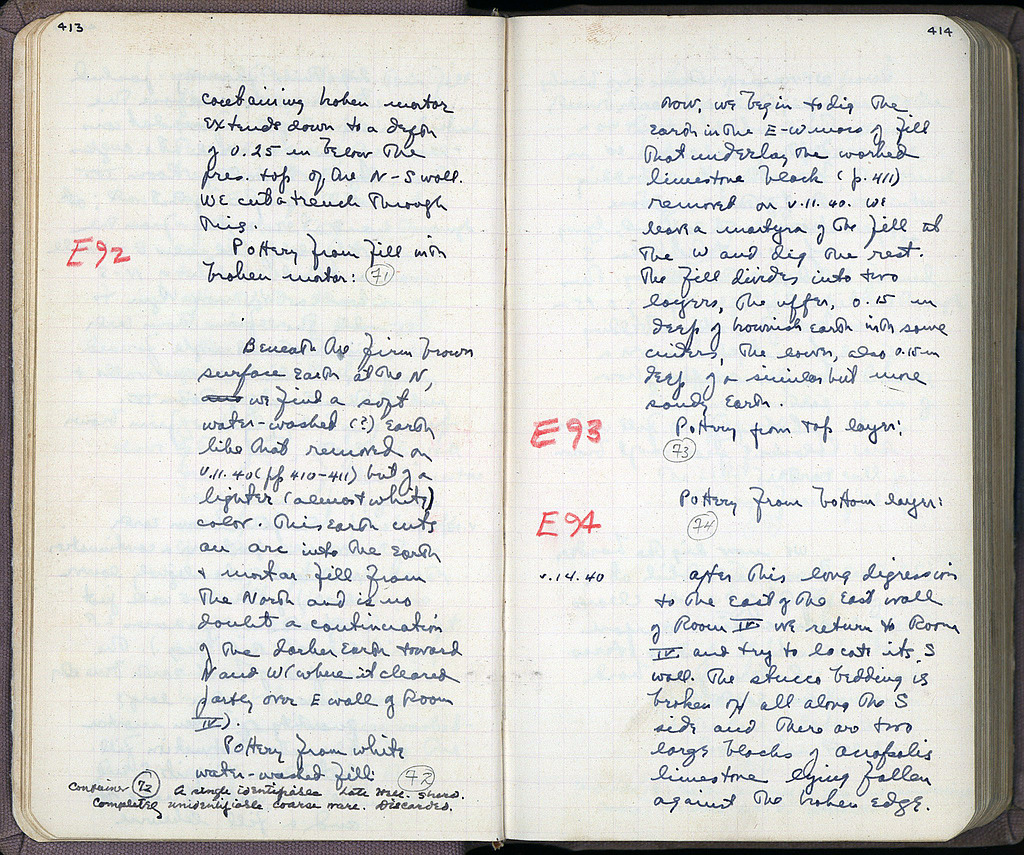 413
containing broken mortar
extends down to a depth
of 0.25 m below the
pres. top of the N-S wall.
We cut a trench through
this.
E92
Pottery from fill with
broken mortar: 71
Beneath the firm brown
surface earth at the N,
we find a soft
water-washed (?) earth
like that removed on
V.11.40 (pp 410-411) but of a
lighter (almost white)
color. This earth cuts
an arc into the earth
+ mortar fill from
the North and is no
doubt a continuation
of the darker earth toward
N and W (where it cleared
partly over E wall of Room
IV).
Pottery from white
water-washed fill: 72
Container 72 A single identifiable late Hell. sherd.
Completely unidentifiable coarse ware. Discarded.
414
Now, we begin to dig the
earth in the E-W mass of fill
that underlay the worked
limestone block (p. 411)
removed on V.11.40. We
leave a martyra of the fill at
the W and dig the rest.
The fill divides into two
layers, the upper, 0.15 m
deep of brownish earth with some
cinders, the lower, also 0.15 m
deep of a similar but more
sandy earth.
E93
Pottery from top layer:
73
Pottery from bottom layer:
E94
74
V.14.40
After this long digression
to the East of the East wall
of Room IV we return to Room
IV and try to locate its S
wall. The stucco bedding is
broken off all along the S
side and there are two
large blocks of acropolis
limestone lying fallen
against the broken edge.